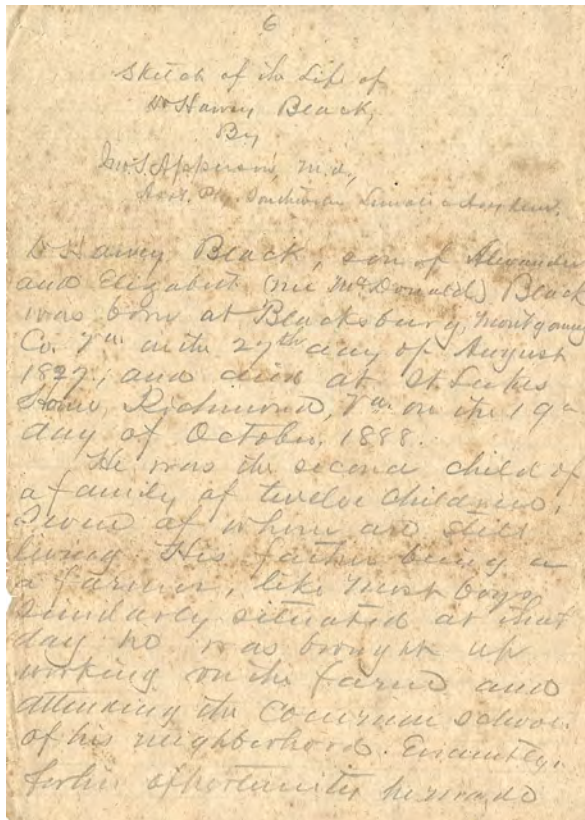 6
Sketch of the Life of
Dr Harvey Black,
By
Jno. S. Apperson, M.D.,
Asst. Phy. Southwestern Lunatic Asylum.
Dr Harvey Black, son of Alexander
and Elizabeth (nee McDonald) Black
was born at Blacksburg, Montgomery
Co. Va. on the 27th day of August
1827, and died at St. Lukes
Home, Richmond, Va. on the 19th
day of October, 1888.
He was the second child of
a family of twelve children,
Seven of whom are still
living. His father being a
a farmer, like most boys
similarly situated at that
day he was brought up
working on the farm and
attending the common school
of his neighborhood.
opportunities he made